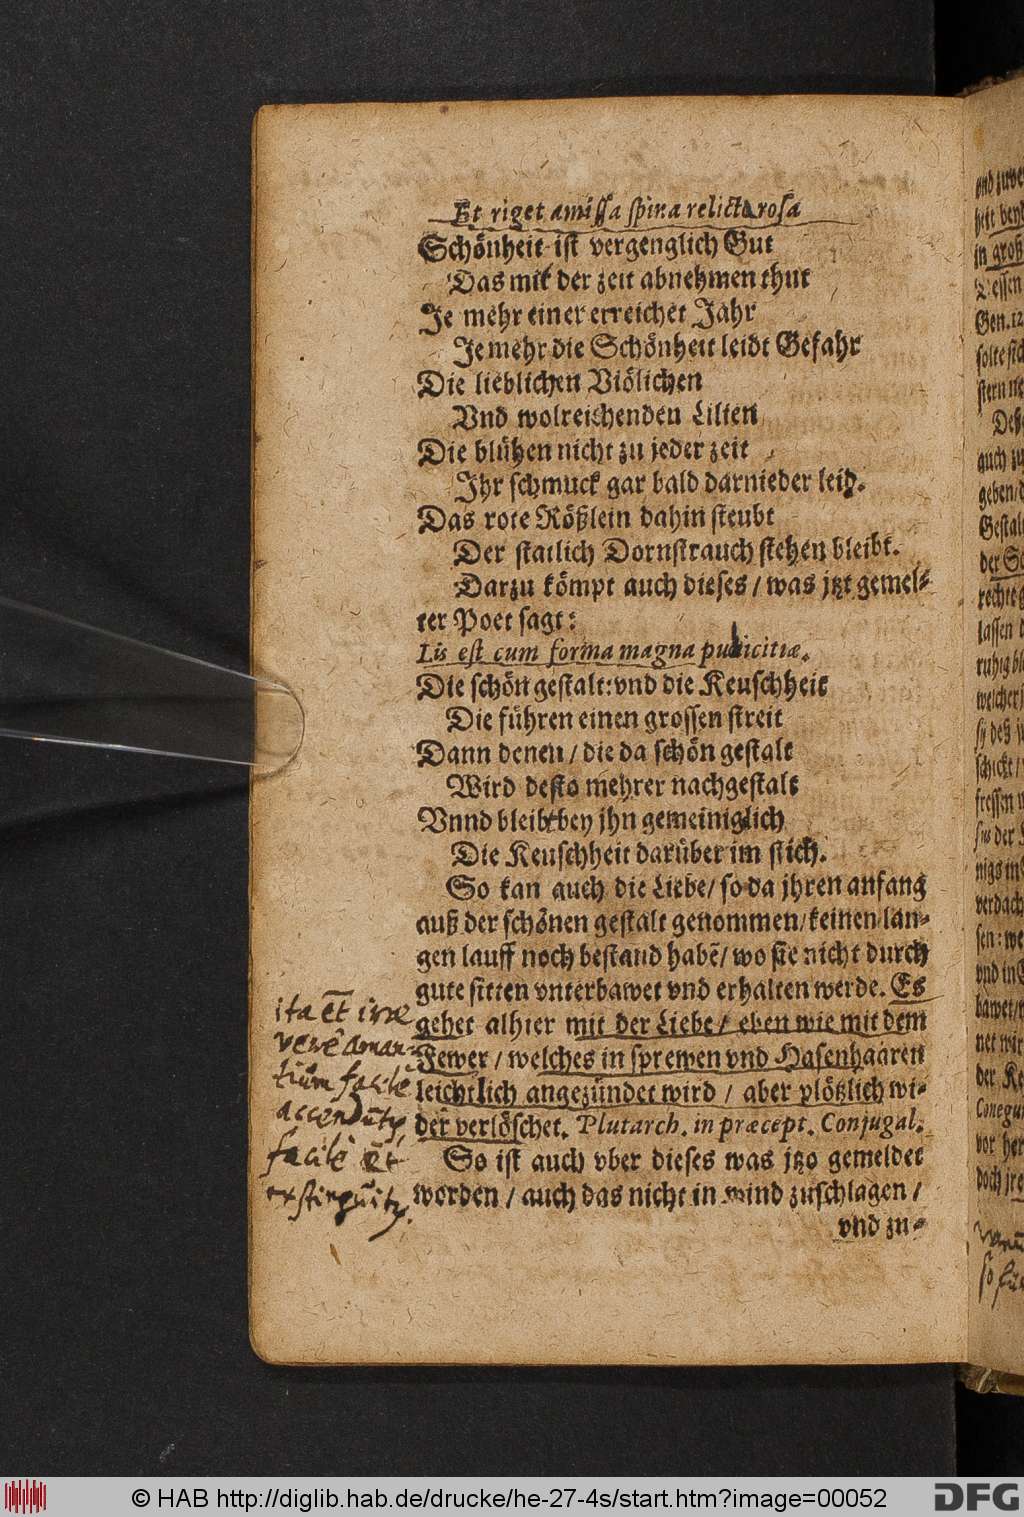 Et riget amissa spina relicta rosa
Schönheit ist vergenglich Gut
Das mit der zeit abnehmen thut
Je mehr einer erreichet Jahr
Je mehr die Schönheit leidt Gefahr
Die lieblichen Viölichen
Vnd wolreichenden Lilien
Die blühen nicht zu jeder zeit
Ihr schmuck gar bald darnieder leid.
Das rote Rößlein dahin steubt
Der statlich Dornstrauch stehen bleibt.
Darzu kömpt auch dieses / was jtzt gemel-
ter Poet sagt:
Lis est cum forma magna pudicitiæ.
Die schön gestalt: vnd die Keuschheit
Die führen einen grossen streit
Dann denen / die da schön gestalt
Wird desto mehrer nachgestalt
Vnnd bleibt bey jhn gemeiniglich
Die Keuschheit darüber im stich.
So kan auch die Liebe / so da jhren anfang
auß der schönen gestalt genommen / keinen lan-
gen lauff noch bestand habē / wo sie nicht durch
gute sitten vnterbawet vnd erhalten werde. Es
gehet alhier mit der Liebe / eben wie mit dem
Fewer / welches in sprewen vnd Hasenhaaren
leichtlich angezündet wird / aber plötzlich wi-
der verlöschet. Plutarch. in præcept. Conjugal.
So ist auch vber dieses was jtzo gemeldet
worden / auch das nicht in wind zuschlagen /
vnd zu-
ita et iræ
verè aman-
tium facilè
accenduntur,
facilè et
exstinguuntur.
© HAB http://diglib.hab.de/drucke/he-27-4s/start.htm?image=00052
DFG